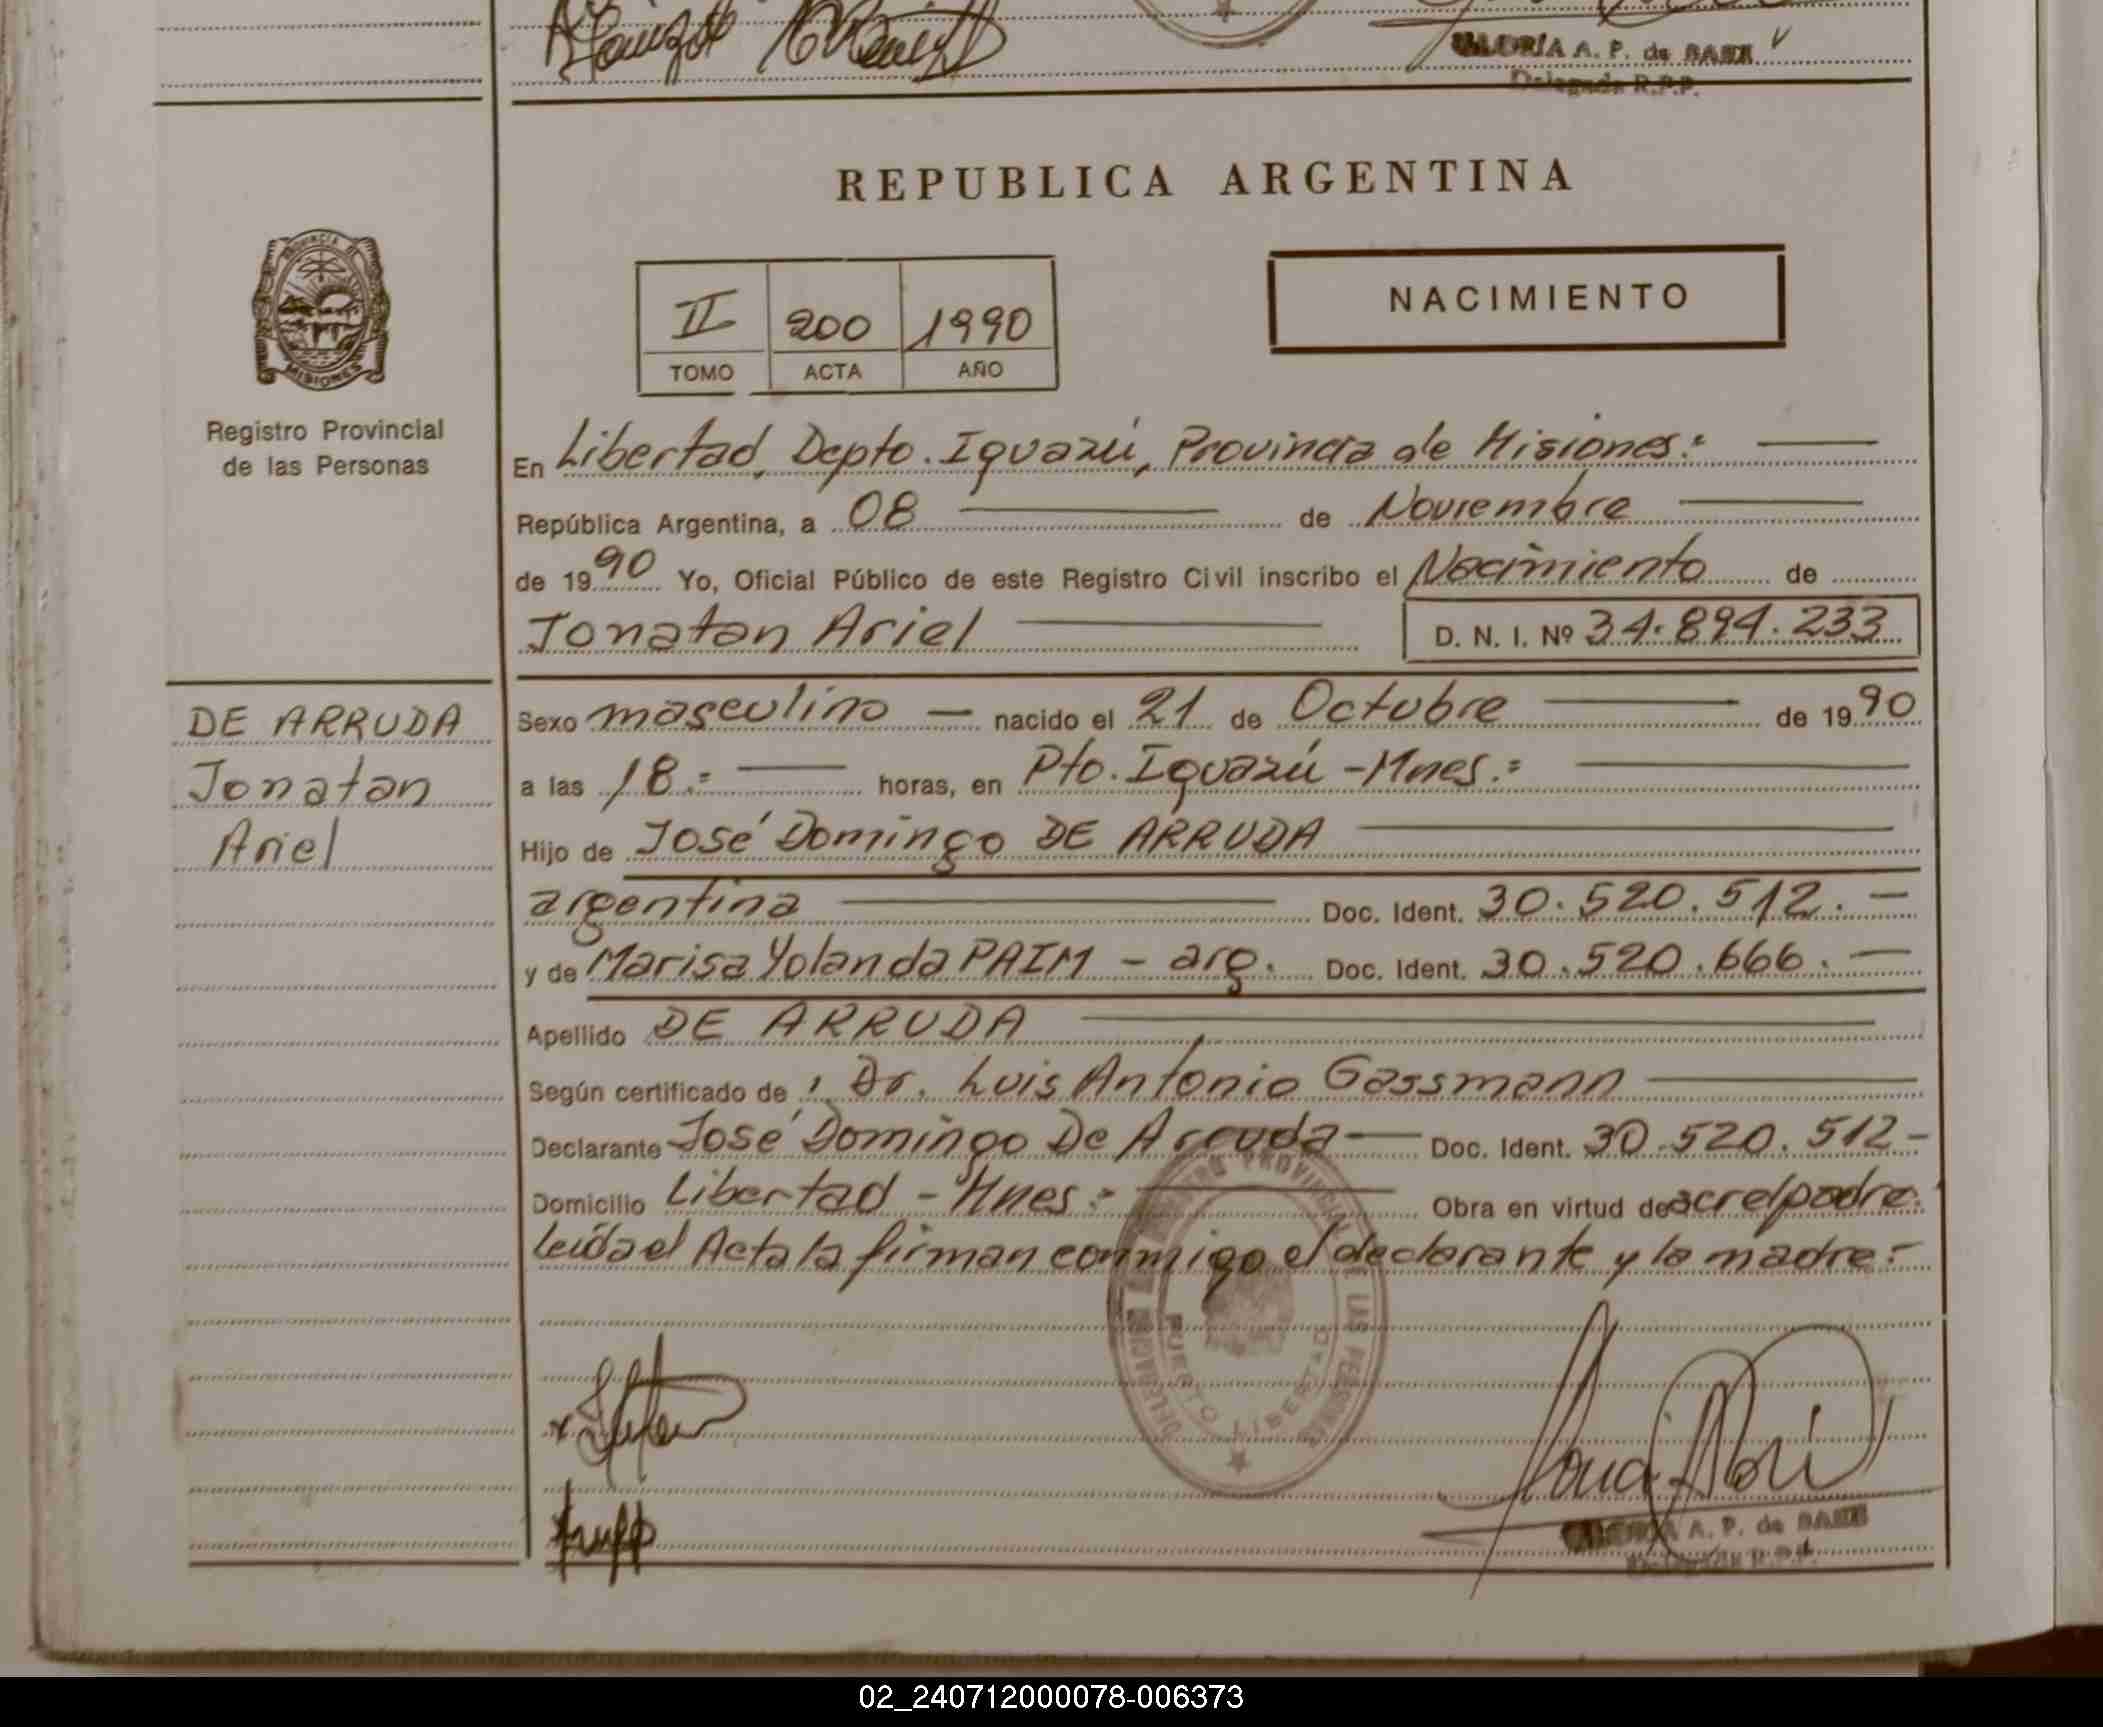 GLORIA A. P. de BAEZ
Delegada R.P.P.
REPUBLICA ARGENTINA
PROVINCIA DE
MISIONES
Registro Provincial
de las Personas
II 200 1990
TOMO ACTA AÑO
NACIMIENTO
En Libertad, Depto. Iguazú, Provincia de Misiones:
República Argentina, a 08 de Noviembre
de 1990 Yo, Oficial Público de este Registro Civil inscribo el Nacimiento de
Jonatan Ariel D. N. I. Nº 34.894.233
DE ARRUDA
Jonatan
Ariel
Sexo masculino — nacido el 21 de Octubre de 1990
a las 18.= horas, en Pto. Iguazú - Mnes.=
Hijo de José Domingo DE ARRUDA
argentina Doc. Ident. 30.520.512. —
y de Marisa Yolanda PAIM - arg. Doc. Ident. 30.520.666. —
Apellido DE ARRUDA
Según certificado de Dr. Luis Antonio Gassmann
Declarante José Domingo De Arruda — Doc. Ident. 30.520.512 -
Domicilio Libertad - Mnes.- Obra en virtud de padre.
leída el Acta la firman conmigo el declarante y la madre.-
DELEGACION REGISTRO PROVINCIAL DE LAS PERSONAS
PUERTO LIBERTAD
GLORIA A. P. de BAEZ
Delegada R.P.P.
02_240712000078-006373